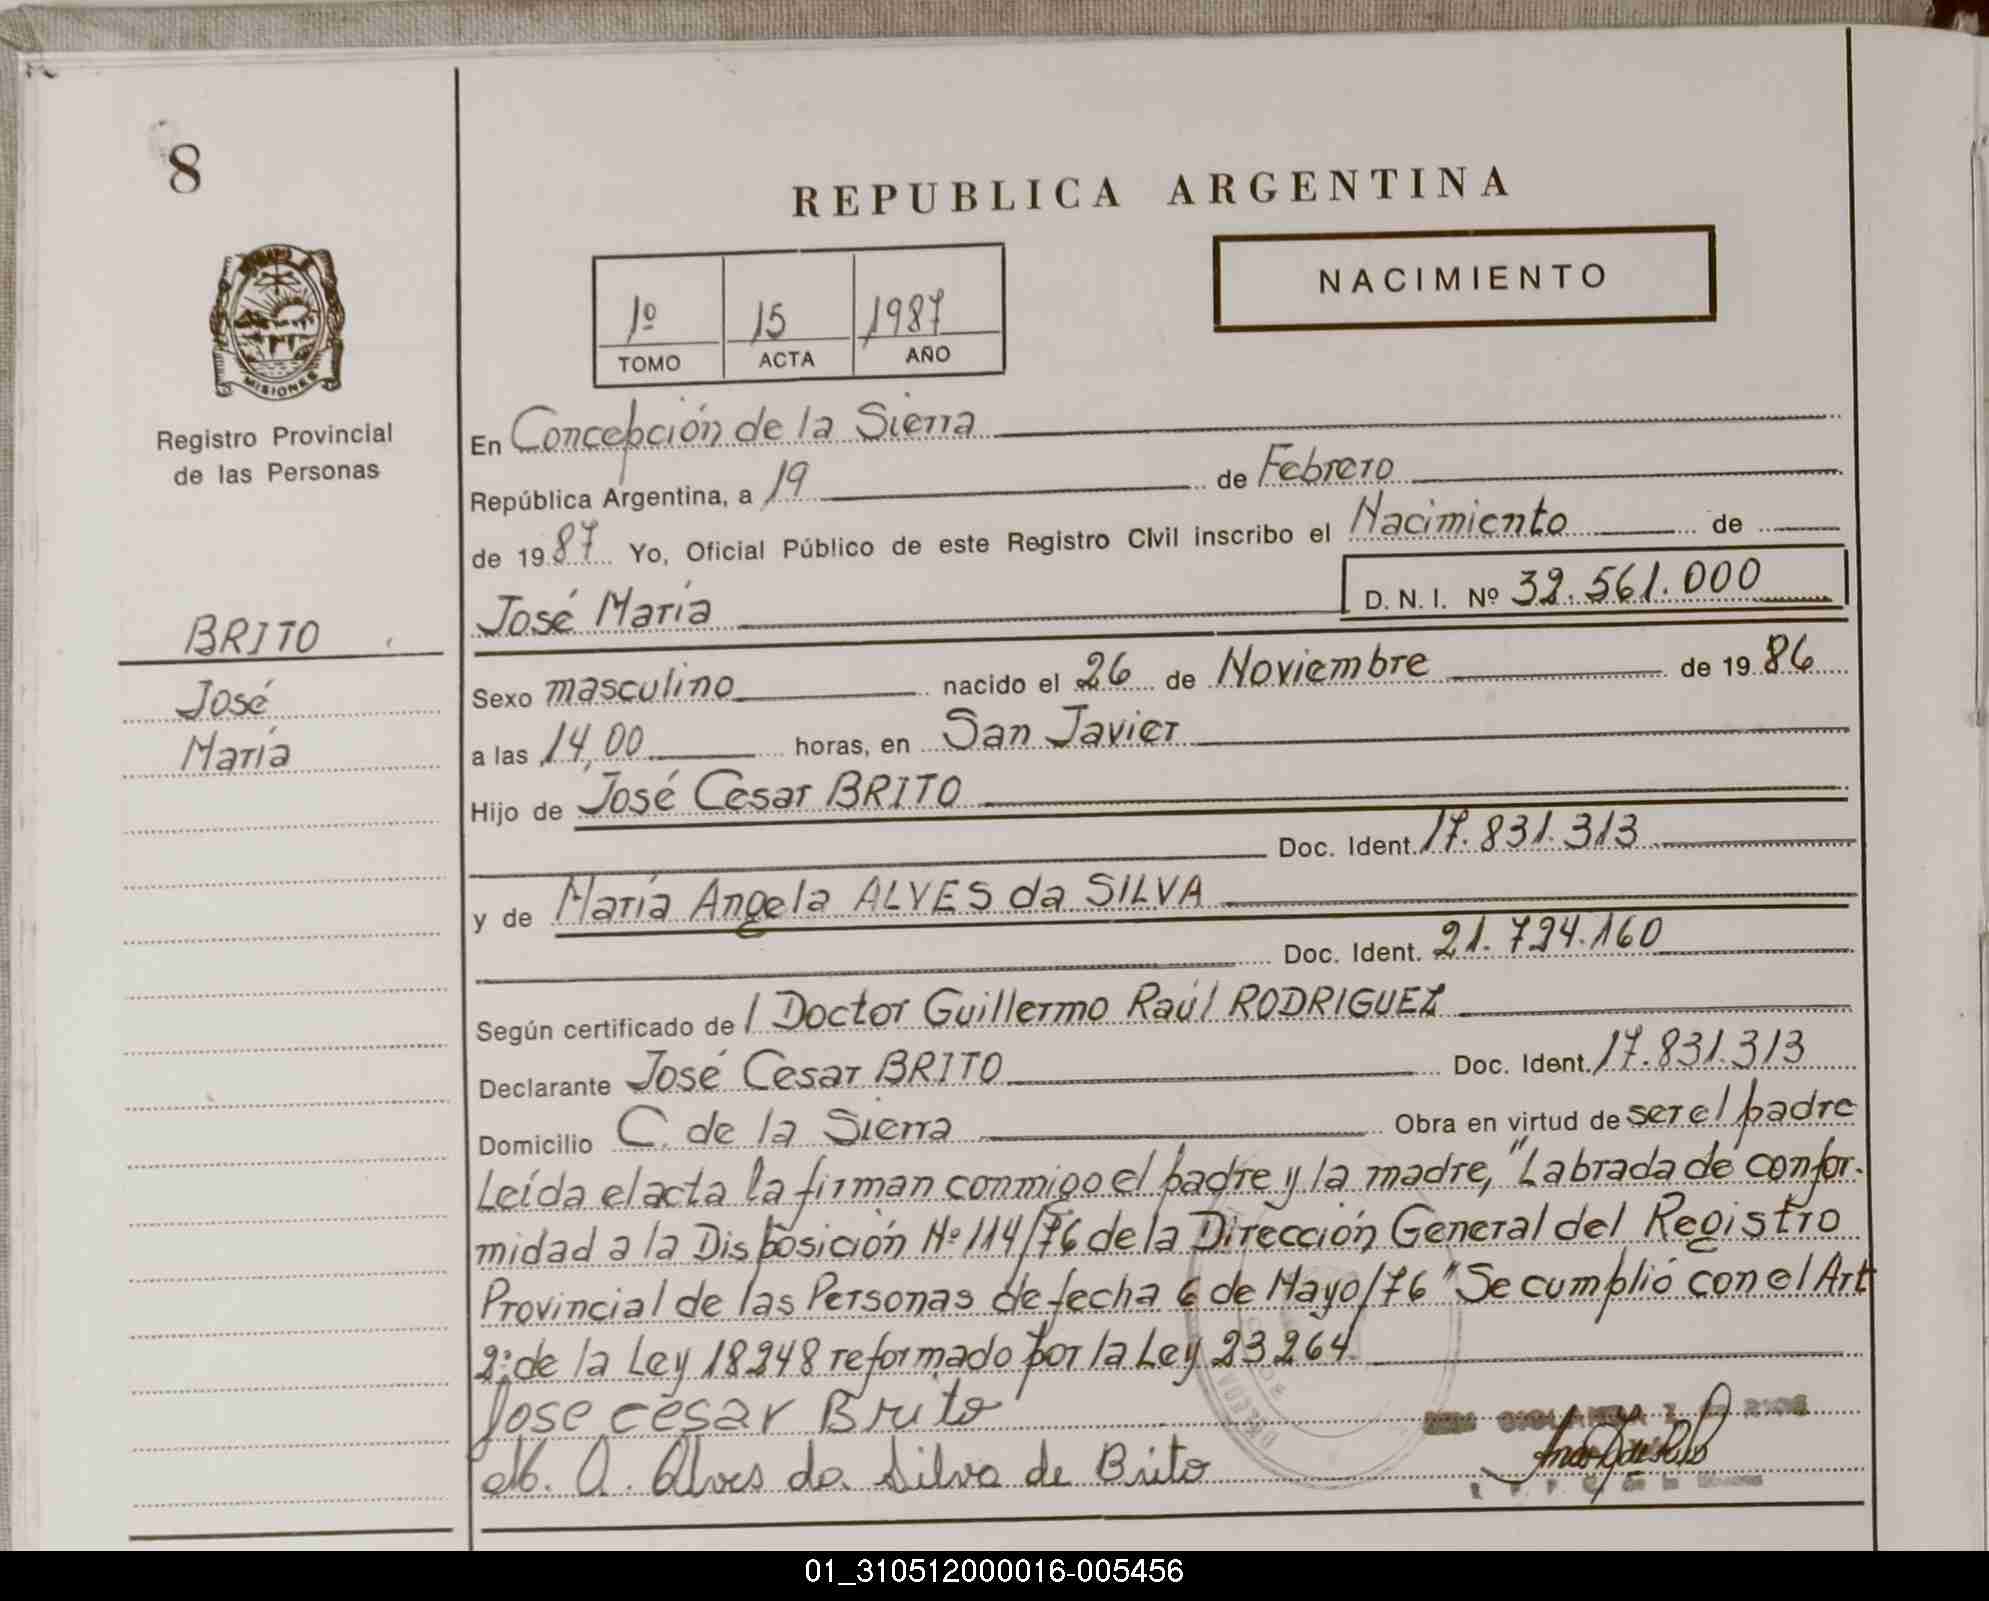 8
REPUBLICA ARGENTINA
NACIMIENTO
1º 15 1987
TOMO ACTA AÑO
MISIONES
Registro Provincial
de las Personas
BRITO
José
María
En Concepción de la Sierra
República Argentina, a 19 de Febrero
de 1987 Yo, Oficial Público de este Registro Civil inscribo el Nacimiento de
José María D. N. I. Nº 32.561.000
Sexo masculino nacido el 26 de Noviembre de 1986
a las 14,00 horas, en San Javier
Hijo de José Cesar BRITO
Doc. Ident. 17.831.313
y de María Angela ALVES da SILVA
Doc. Ident. 21.724.160
Según certificado de l Doctor Guillermo Raúl RODRIGUEZ
Declarante José Cesar BRITO Doc. Ident. 17.831.313
Domicilio C. de la Sierra Obra en virtud de ser el padre
Leída el acta la firman conmigo el padre y la madre, "Labrada de confor-
midad a la Disposición Nº 114/76 de la Dirección General del Registro
Provincial de las Personas de fecha 6 de Mayo/76" Se cumplió con el Art
2: de la Ley 18248 reformado por la Ley 23264.
Jose cesar Brito
M. A. Alves da Silva de Brito
01_310512000016-005456